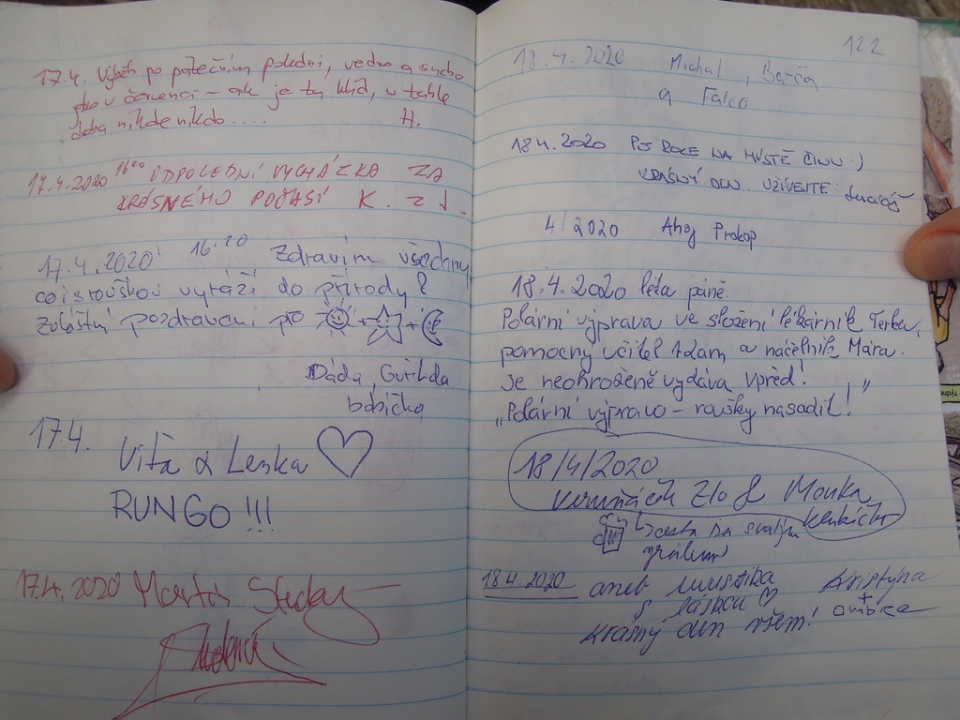 17.4. Výběh po pátečním poledni, vedro a sucho
jako v červenci – ale je tu klid, v tuhle
dobu nikde nikdo.... H.
17.4.2020 16⁰⁰ ODPOLEDNÍ VYCHÁZKA ZA
KRÁSNÉHO POČASÍ K. Z J.
17.4.2020 16²⁰ Zdravím všechny
co i s rouškou vyráží do přírody!
Zvláštní pozdravení pro
Dáda,
babička
17.4.
Víťa & Lenka
RUN GO !!!
17.4. 2020
122
18.4.2020 Michal, Barča
a Falco
18 4. 2020 PO ROCE NA MÍSTĚ ČINU :)
KRÁSNÝ DEN. UŽÍVEJTE
4/2020 Ahoj Prokop
18.4.2020 léta páně.
Polární výprava ve složení lékárník Terka,
pomocný učitel Adam a náčelník Mára.
je neohroženě vydává vpřed!
„Polární výpravo – roušky nasadit!"
18/4/2020
Zlo & Mouka
cesta za svatým
grálem
18.4 2020 aneb Kristýna
s láskou +
Krásný den všem!